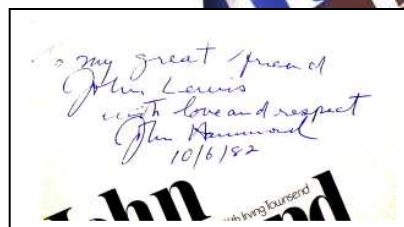 To my great friend
John Lewis
with love and respect
John Hammond
10/6/82
John
with Irving Townsend